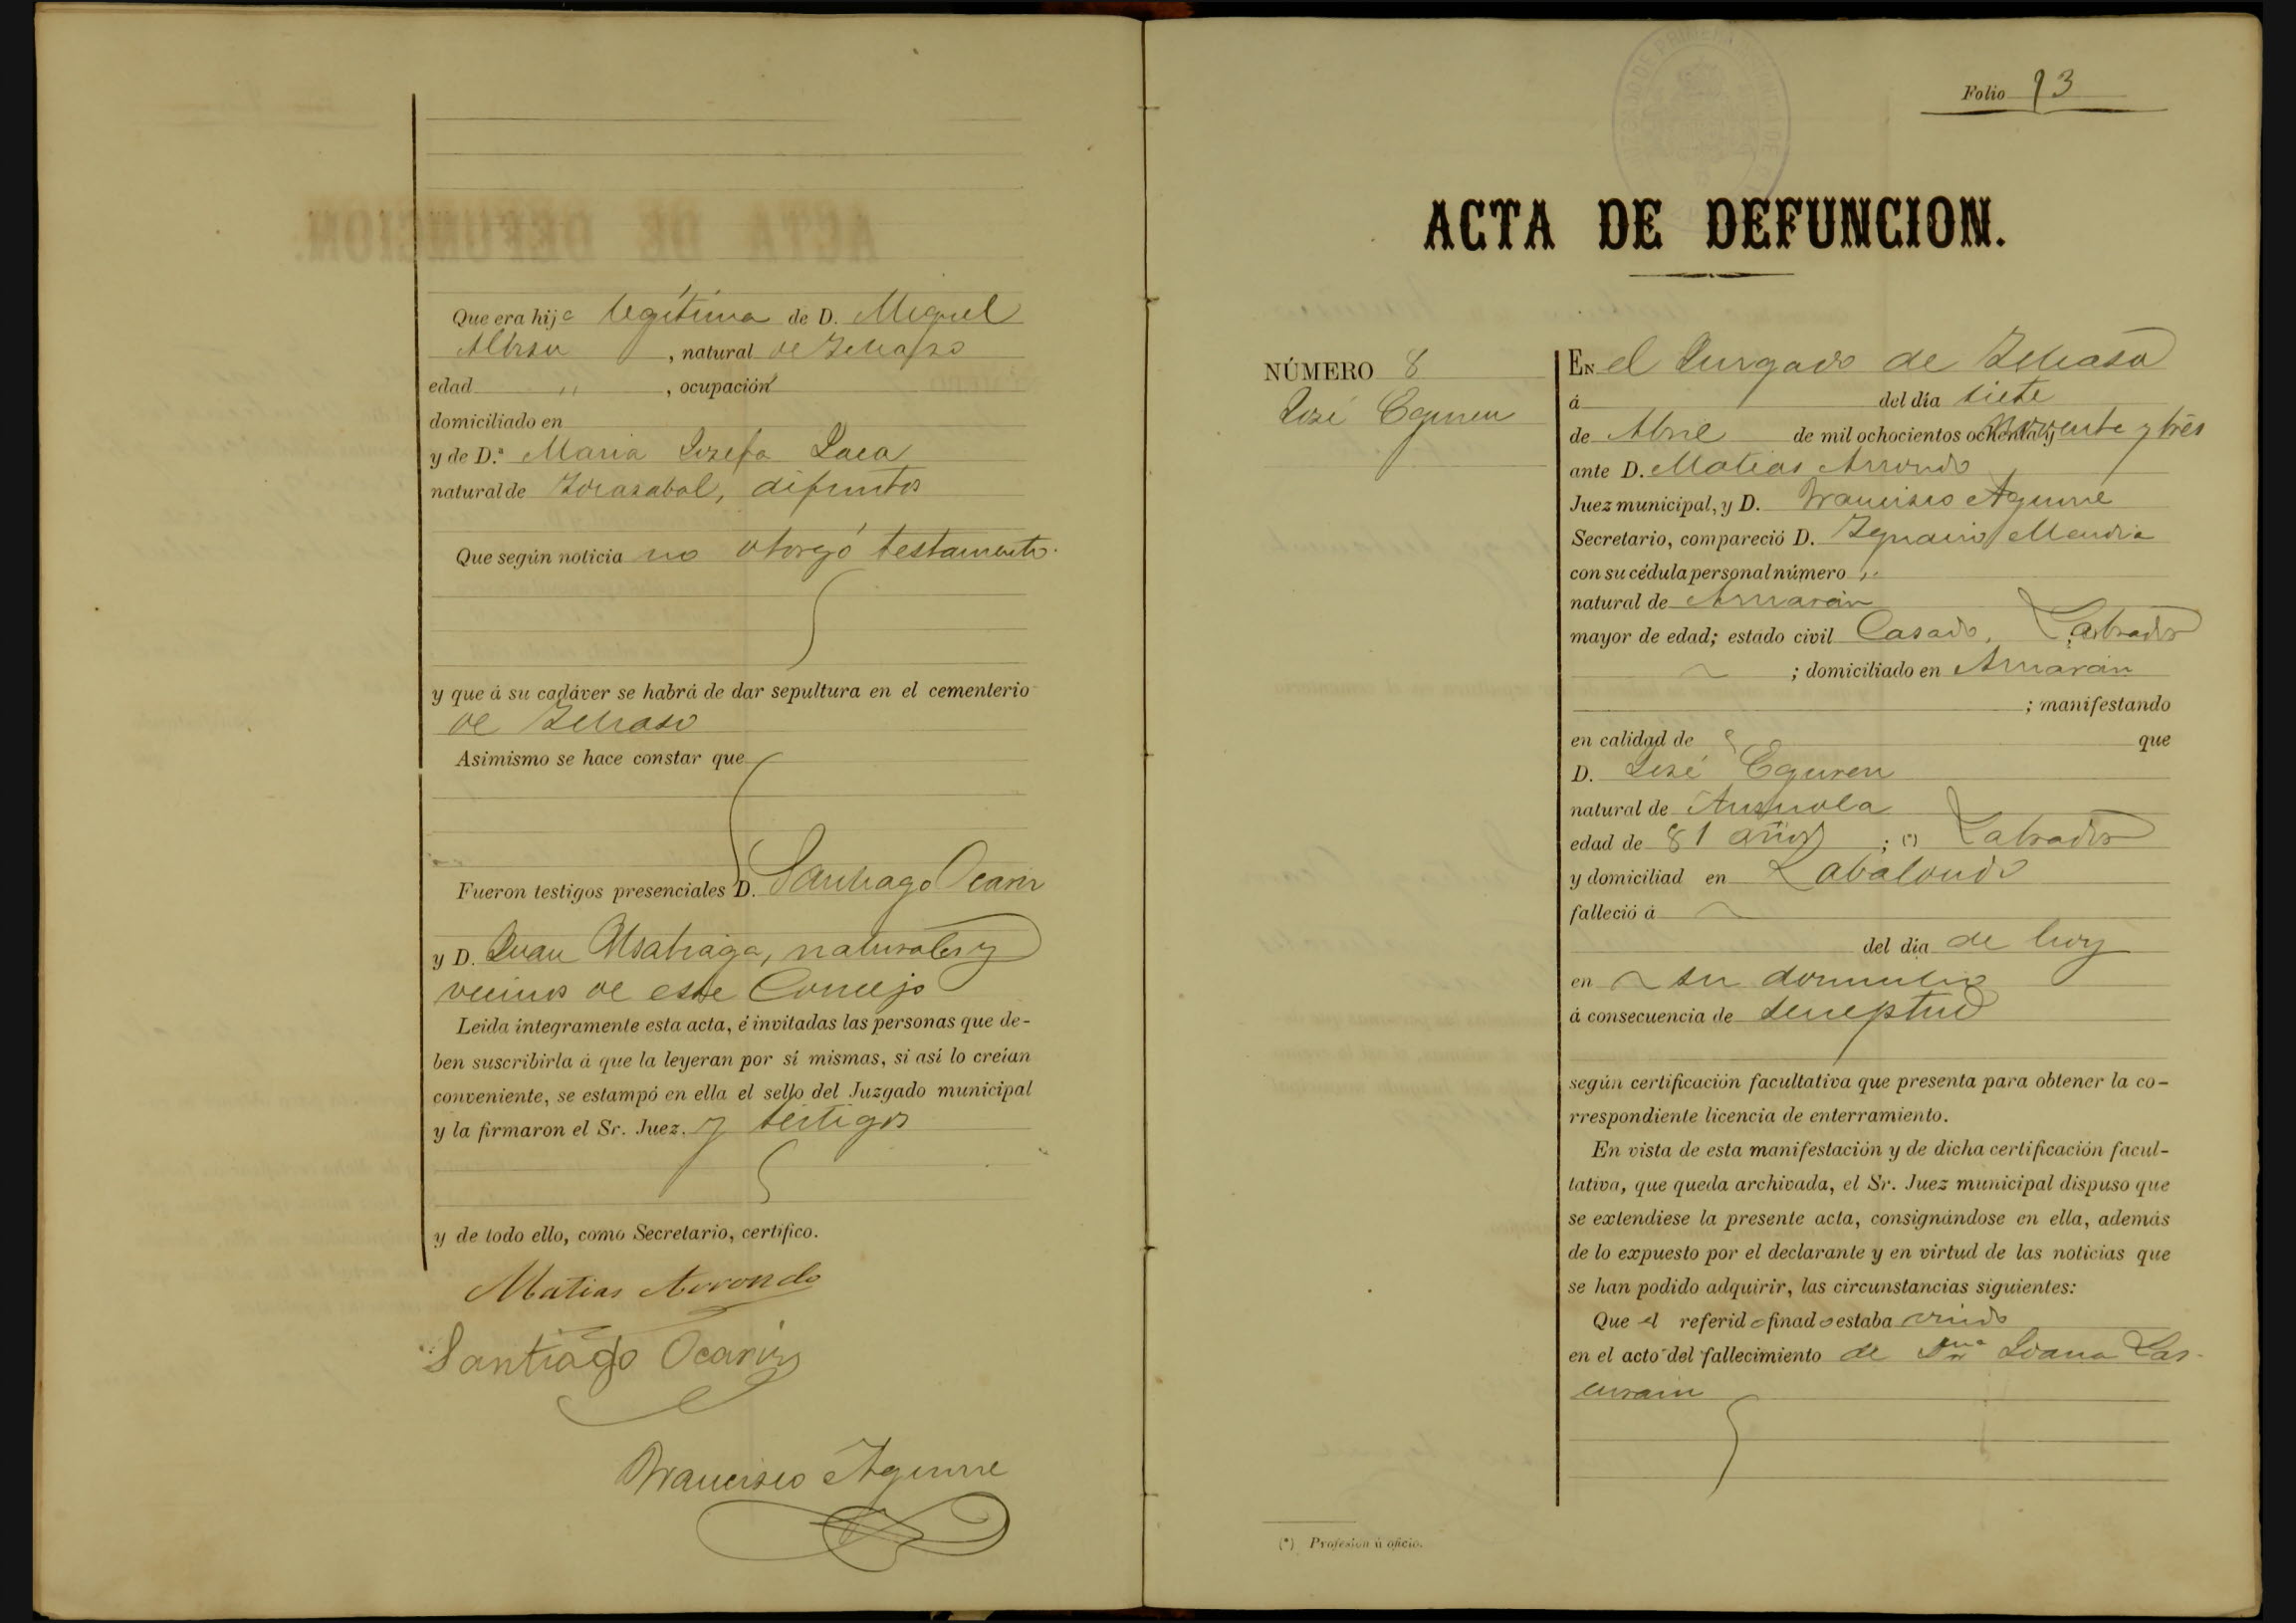 Que era hija legítima de D. Miguel
Albisu, natural de Ichaso
edad " , ocupación
domiciliado en
y de D.ª Maria Josefa Laca
natural de Idiazabal, difuntos
Que según noticia no otorgó testamento.
y que á su cadáver se habrá de dar sepultura en el cementerio
de Ichaso
Asimismo se hace constar que
Fueron testigos presenciales D. Santiago Ocariz
y D. Juan Alsatiaga, naturales y
vecinos de este Concejo
Leida íntegramente esta acta, é invitadas las personas que de-
ben suscribirla á que la leyeran por sí mismas, si así lo creían
conveniente, se estampó en ella el sello del Juzgado municipal
y la firmaron el Sr. Juez. y testigos
y de todo ello, como Secretario, certifico.
Matias Arrondo
Santiago Ocariz
Francisco Aguirre
Folio 13
ACTA DE DEFUNCION.
NÚMERO 8
José Eguren
EN el Jurgado de Ichaso
á del día siete
de Abril de mil ochocientos ochenta y noventa y tres
ante D. Matias Arrondo
Juez municipal, y D. Francisco Aguirre
Secretario, compareció D. Ignacio Mendia
con su cédula personal número "
natural de Arriarán
mayor de edad; estado civil Casado, Labrador
; domiciliado en Arriarán
; manifestando
en calidad de que
D. José Eguren
natural de Anzuola
edad de 81 años ; (*) Labrador
y domiciliad en Zabalondo
falleció á
del día de hoy
en su domicilio
á consecuencia de seneptud
según certificación facultativa que presenta para obtener la co-
rrespondiente licencia de enterramiento.
En vista de esta manifestación y de dicha certificación facul-
tativa, que queda archivada, el Sr. Juez municipal dispuso que
se extendiese la presente acta, consignándose en ella, además
de lo expuesto por el declarante y en virtud de las noticias que
se han podido adquirir, las circunstancias siguientes:
Que el referido finado estaba viudo
en el acto del fallecimiento de Juana Las-
curain
(*) Profesion ú oficio.